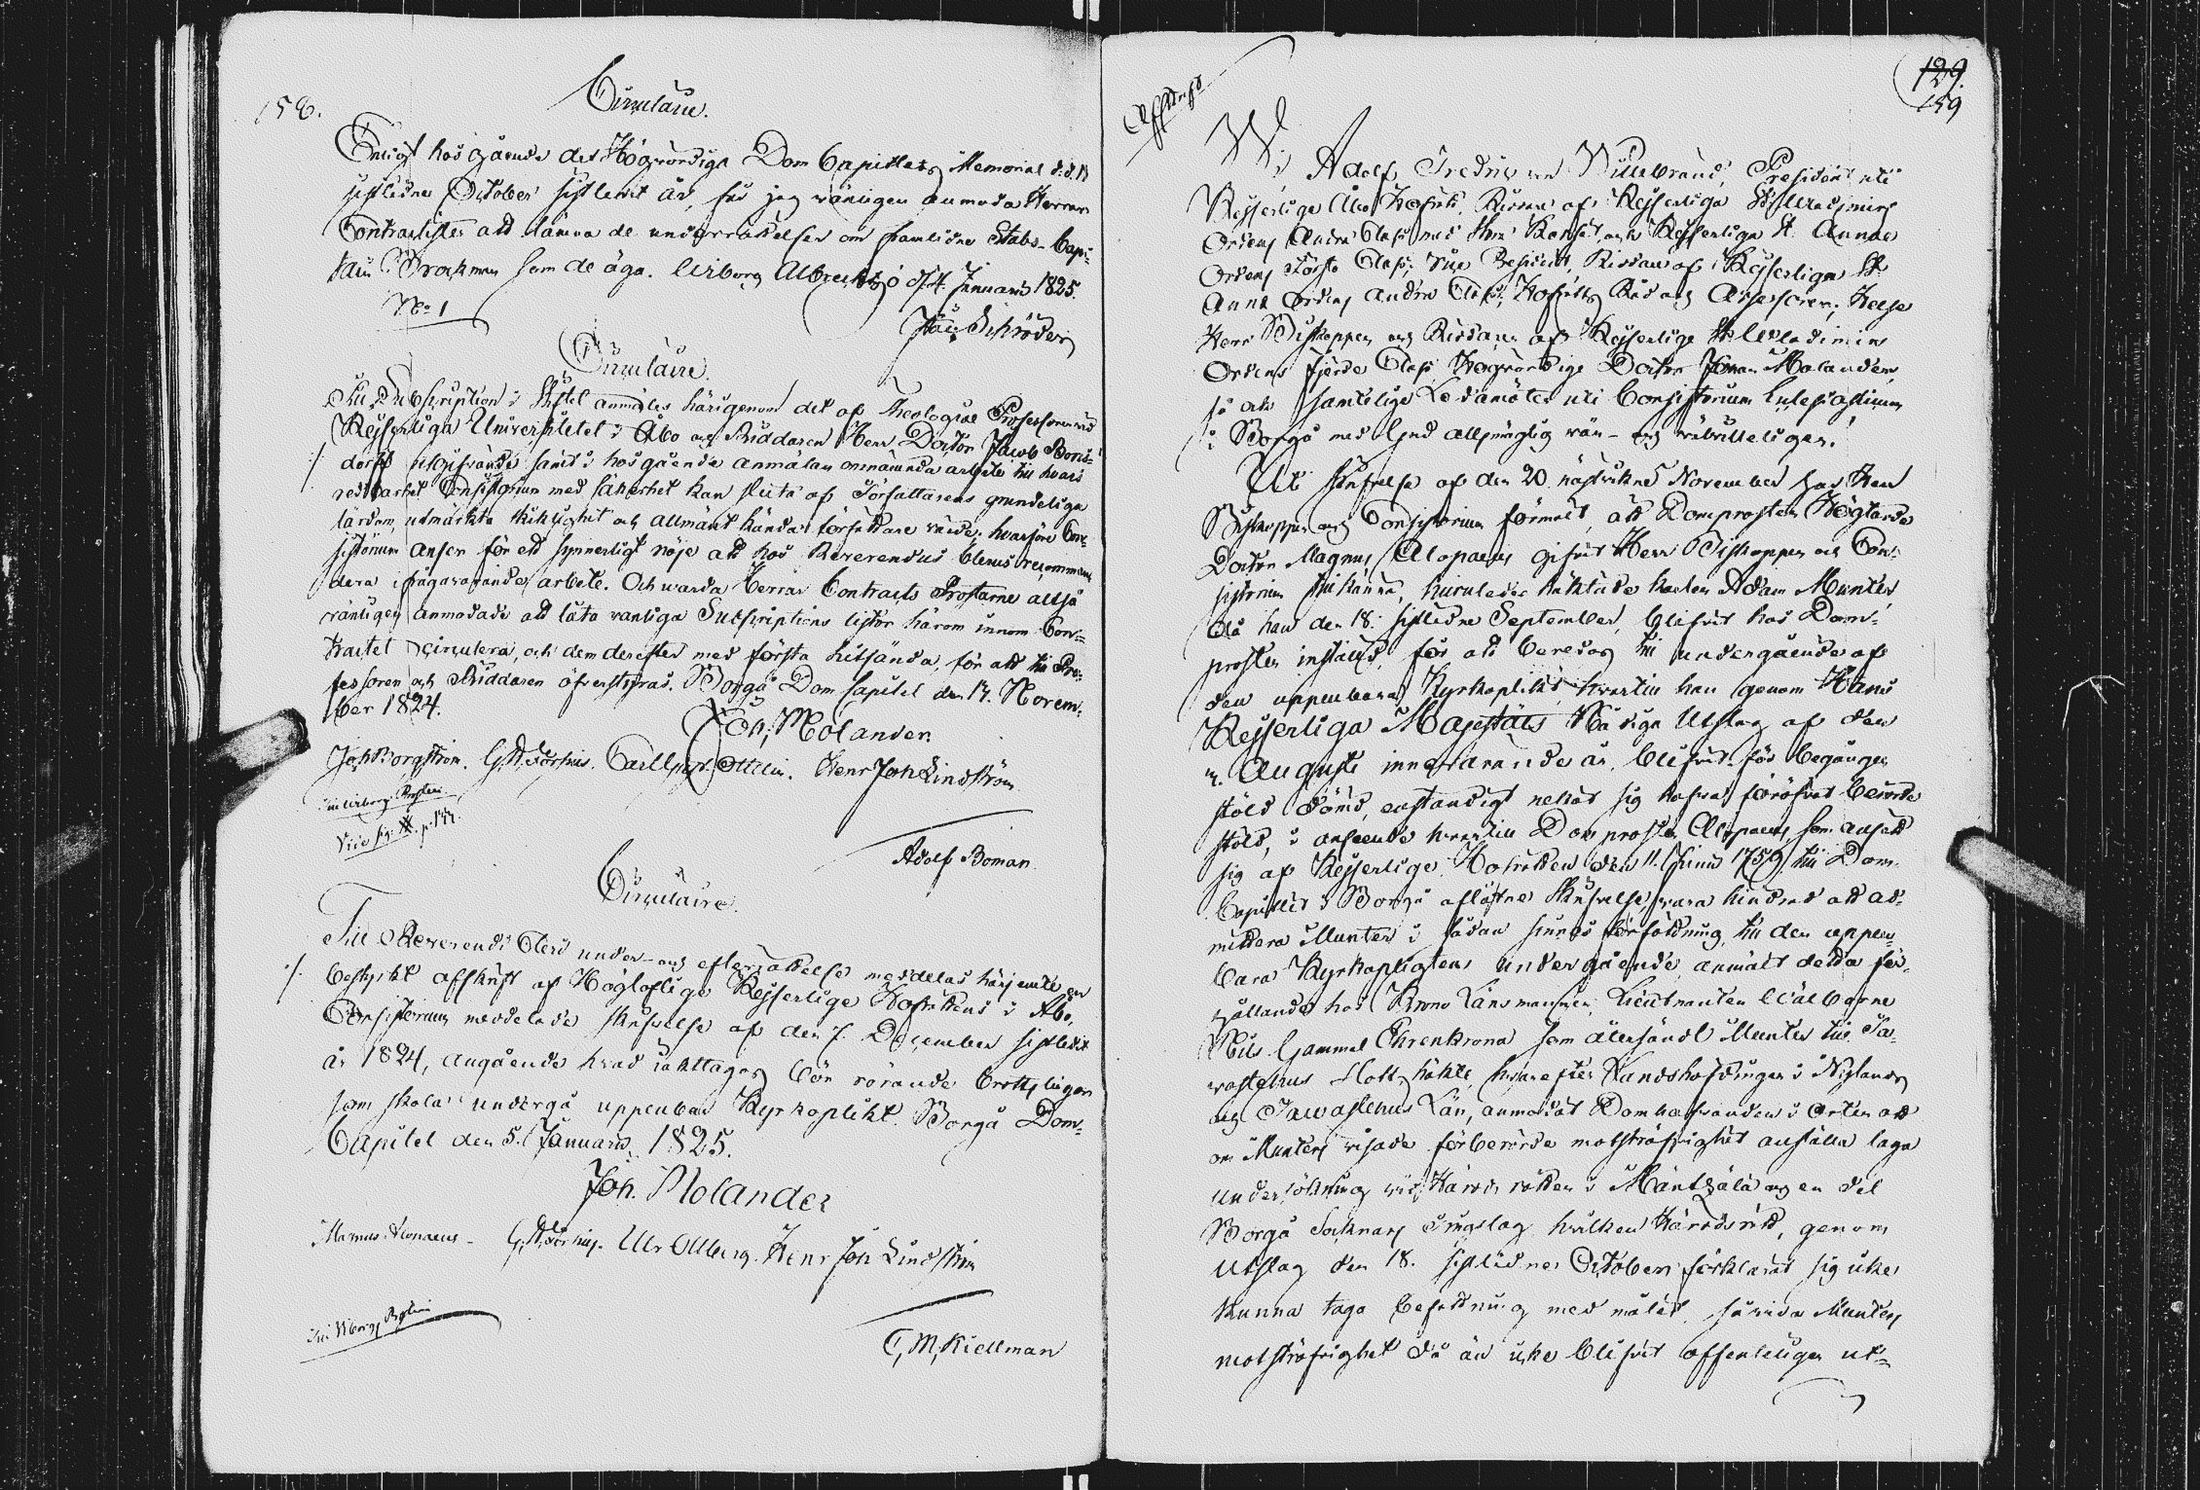 158.
Circulaire.
Enligt hos gående det Högvördiga Dom Capitlets Memorial d.d. 13
sistledne October sistlevit år, får jag vänligen anmoda Herrar
Contractister att lämna de underrättelser om framlidne Stabs-Capi-
tain Brakman som de äga. Wiborg Albrechtsö d. 4 Januarii 1825.
No 1
Schröder
Circulaire.
Till Subscription i Stiftet anmäles härigenom det af Theologiae Professoren vid
Kejserliga Universitetet i Åbo och Riddaren Herr Doctor Jacob Bons-
dorff utgifvande samt i hos gående anmälan omnämnda arbete till hvars
redbarhet Consistorium med säkerhet kan sluta af Författarens grundeliga
lärdom, utmärkta skicklighet och allmänt kända författare värde; hvarföre Con-
sistorium anser för ett synnerligt nöje att hos Reverendus Clerus recommen-
dera ifrågavarande arbete. Och warda Herrar Contracts Prostarne altså
vänligen anmodade att låta vanliga Subscriptions listor härom innom Con-
tractet circulera, och dem derefter med första hitsända, för att till Pro-
fessoren och Riddaren öfverstyras. Borgå Dom Capitel den 17. Novem-
ber 1824.
Joh. Molander.
Joh Borgström. G. A. Forsius. Carl Gust. Ottelin. Henr Joh Lindström
Till Wiborgs Prosteri
Vide sig. p. 144.
Adolf Boman
Circulaire.
Till Reverendi Cleri under- och efterrättelse meddelas härjemte en
bestyrkt affskrift af Högloflige Kejserlige Hofrättens i Åbo,
Consistorium meddelade skrifvelse af den 7. December sistledit
år 1824, angående hvad iakttagas bör rörande brottslingar
som skola undergå uppenbar Kyrkoplikt. Borgå Dom-
Capitel den 5. Januarii 1825.
Joh. Molander
Magnus Alopaeus. G. A. Forsius. Ulr Ollberg. Henr Joh Lindström
Till Wiborgs Prosteri
C, M, Kiellman
Affskrift
129.
159
Wi, Adolf Fredric von Willebrand, President uti
Kejserliga Åbo Hofrätt, Riddare af Kejserliga St. Wladimirs
Ordens Andra Class med Stora Korset, och Kejserliga St. Annae
Ordens Första Class; Vice President, Riddare af Kejserliga St.
Annae Ordens Andra Class, Hofrätts Råd och Assessorer; Helse
Herr Biskoppen och Riddaren af Kejserliga St. Wladimirs
Ordens fjerde Class Högvördige Doctor Johan Molander,
så ock samtelige Ledamöter uti Consistorium Ecclesiasticum
i Borgå med Gud allsmägtig vän- och välvilleligen.!
Uti skrifvelse af den 20. nästvikne November har Herr
Biskoppen och Consistorium förmält, att Domprosten Höglärde
Doctor Magnus Alopaeus gifvit Herr Biskoppen och Con-
sistorium tillkänna, huruledes häktade karlen Adam Munter,
då han den 18. sistledne September, blifvit hos Dom-
prosten inställd, för att beredas till undergående af
den uppenbara Kyrkoplikt, hvartill han genom Hans
Kejserliga Majestäts Nådiga Utslag af den
4. Augusti innevarande år, blifvit för begången
stöld dömd, enständigt nekat sig hafva föröfvat berörde
stöld, i anseende hvartill Domprosten Alopaeus, som ansett
sig af Kejserlige Hofrättens den 11. Junii 1759, till Dom-
Capitlet i Borgå aflåtne skrifvelse, vara hindrad att ad-
mittera Munter i sådan sinnes författning till den uppen-
bara Kyrkopligtens undergående, anmält detta för-
hållande hos Krono Länsmannen, Lieutnanten Wälborne
Nils Gammal Ehrenkrona som återsändt Munter till Ta-
vastehus slottshäkte, hvarefter Landshöfdingen i Nylands
och Tawastehus Län, anmodat Domhafvanden i orten att
om Munters visade förberörde motsträfvighet anställa laga
undersökning vid Härads rätten i Mäntzälä och en del
Borgå Sochnars Tingslag hvilken Häradsrätt, genom
Utslag den 18. sistlidne October förklarat sig icke
kunna taga befattning med målet, så vida Munters
motsträfvighet då än icke blifvit offenteligen ut-